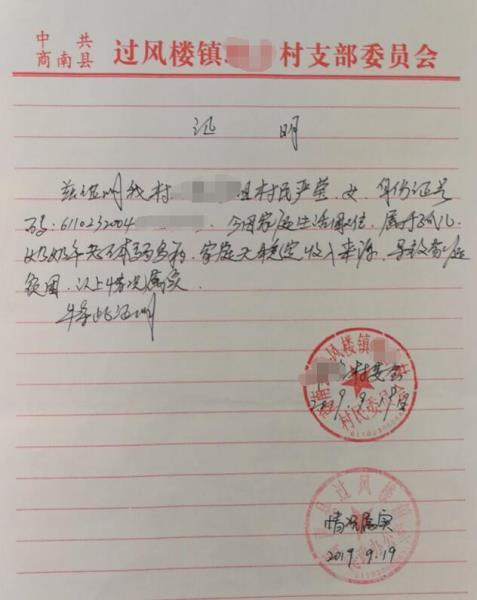 中共
商南县
过风楼镇 村支部委员会
证 明
兹证明我村 组村民严莹,女,身份证号
码:6110232004 。今因家庭生活困难,属于孤儿,
奶奶年老体弱多病,家庭无稳定收入来源,导致家庭
贫困,以上情况属实。
特此证明
过风楼镇
村支会
2019.9.19
村民委员会
过风楼
情况属实
2019.9.19